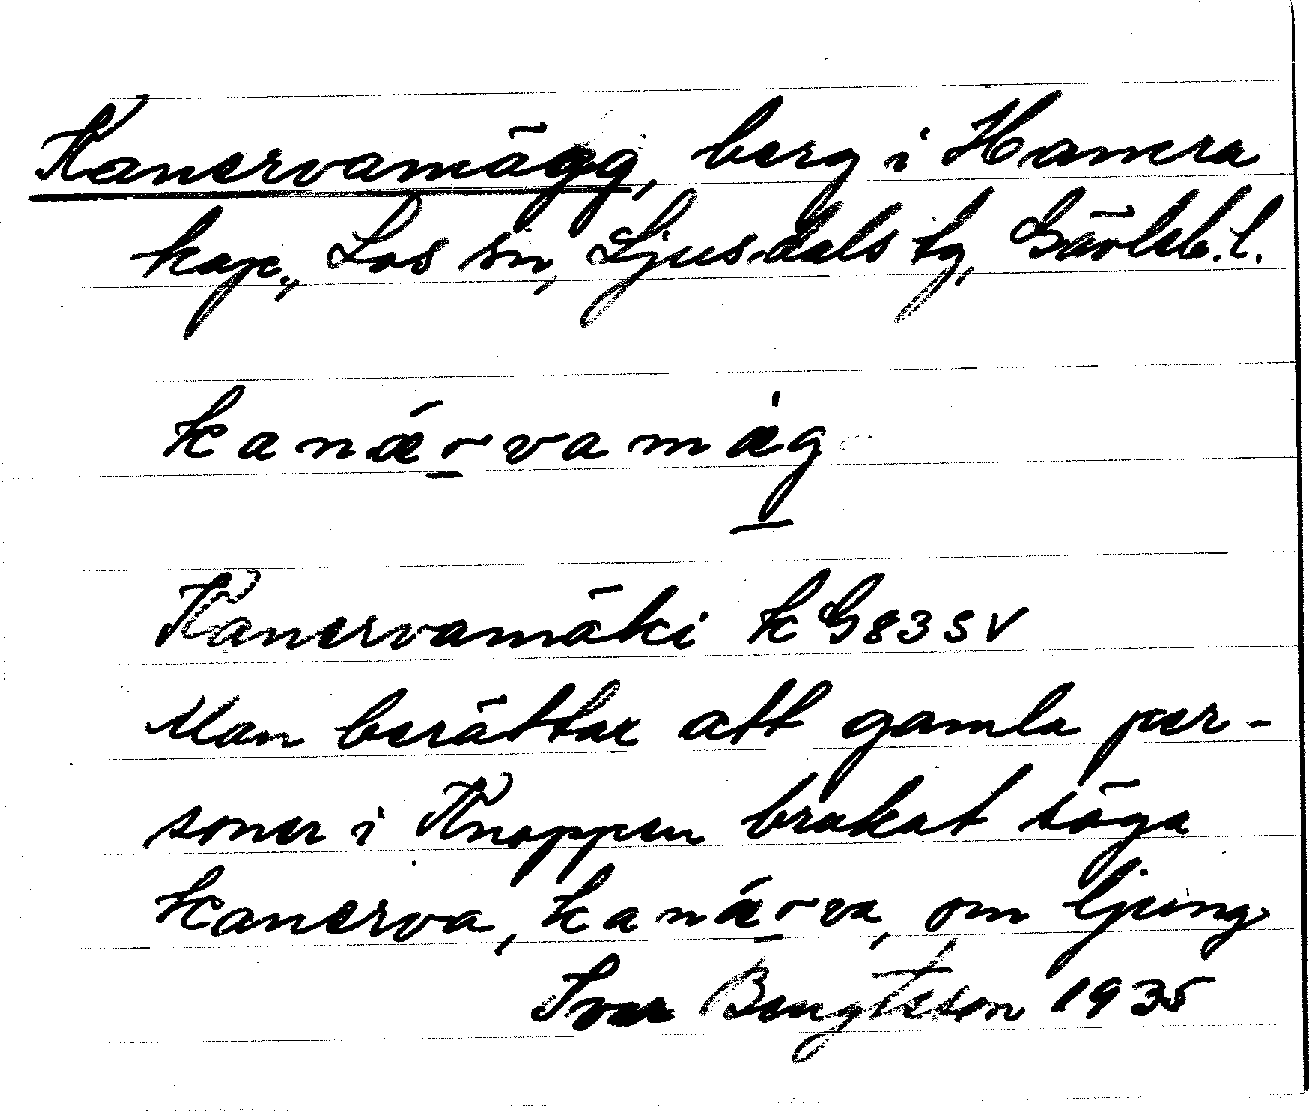 Kanervamägg, berg i Hamra
kap., Los sn, Ljusdals tg, Gävleb.l.
kanǽrvamæ̀g
Kanervamäki KG83SV
Man berättar att gamla per-
soner i Knoppen brukat säga
kanerva, kanǽrva, om ljung
Ivar Bengtsson 1935